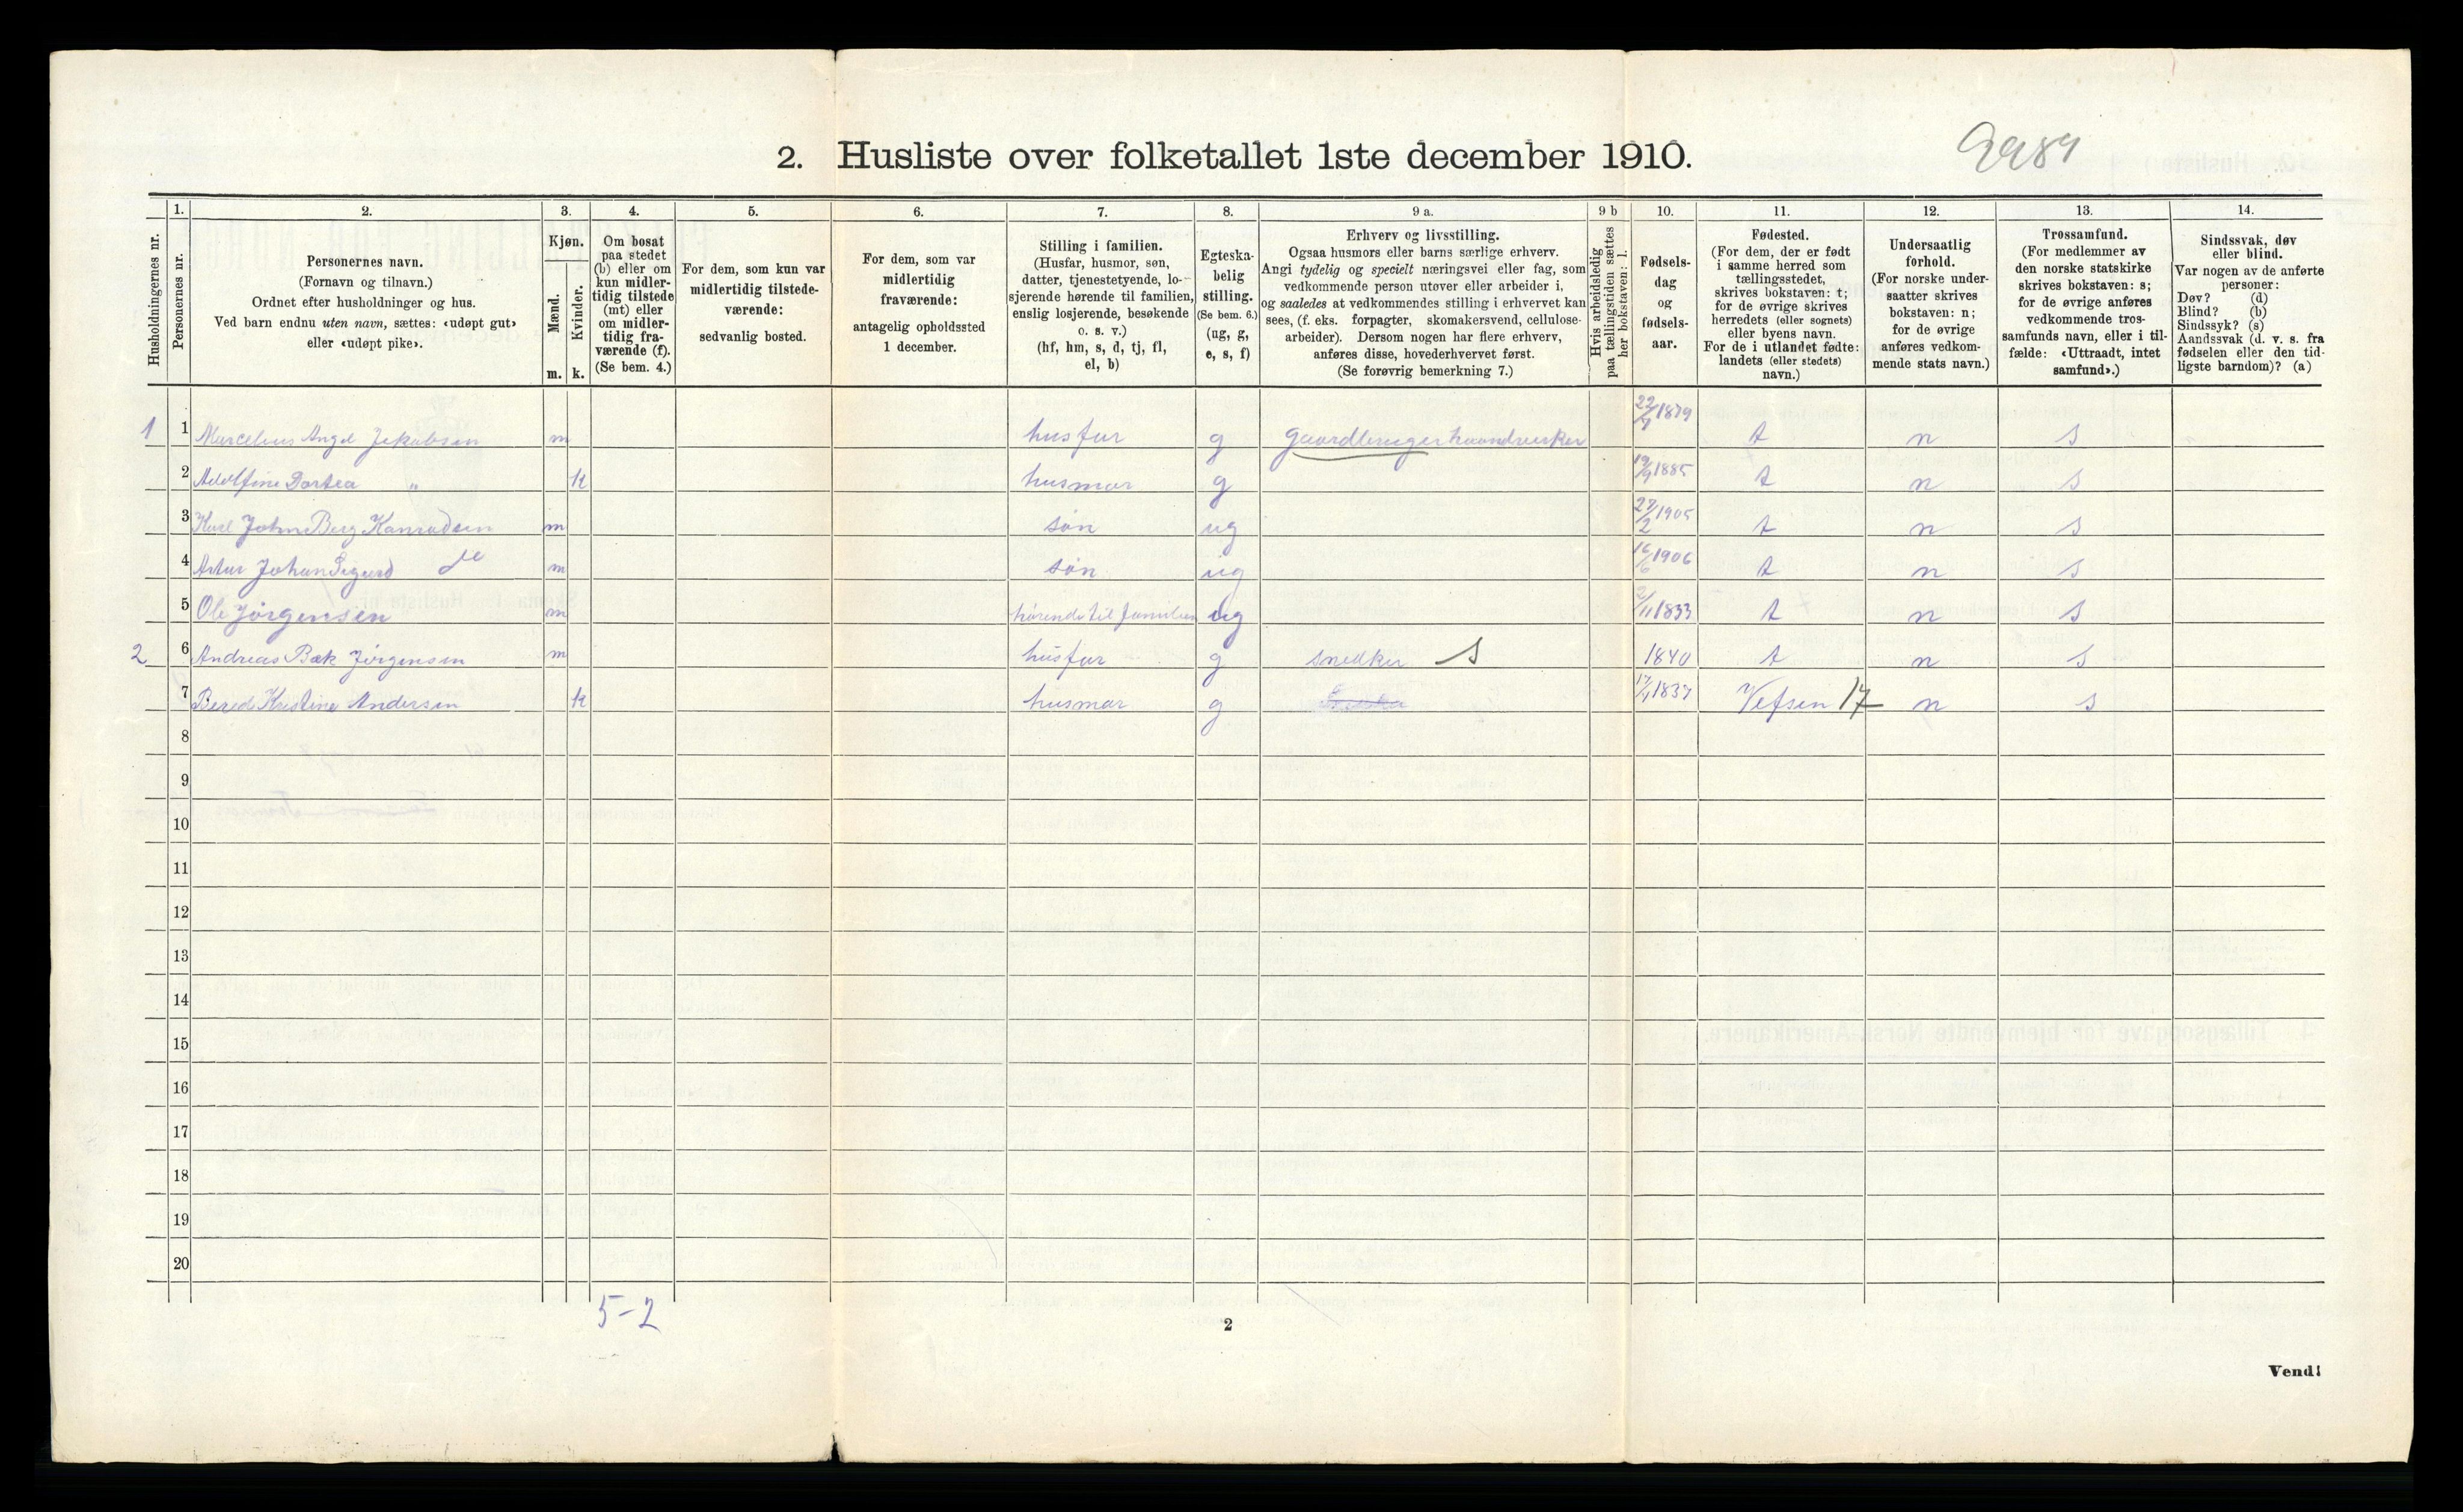 2. Husliste over folketallet 1ste december 1910.
Husholdningernes nr.
1.
Personernes nr.
2.
Personernes navn.
(Fornavn og tilnavn.)
Ordnet efter husholdninger og hus.
Ved barn endnu uten navn, sættes: «udøpt gut»
eller «udøpt pike».
3.
Kjøn.
Mænd.
Kvinder.
m.
k.
4.
Om bosat
paa stedet
(b) eller om
kun midler-
tidig tilstede
(mt) eller
om midler-
tidig fra-
værende (f).
(Se bem. 4.)
5.
For dem, som kun var
midlertidig tilstede-
værende:
sedvanlig bosted.
6.
For dem, som var
midlertidig
fraværende:
antagelig opholdssted
1 december.
7.
Stilling i familien.
(Husfar, husmor, søn,
datter, tjenestetyende, lo-
sjerende hørende til familien,
enslig losjerende, besøkende
o. s. v.)
(hf, hm, s, d, tj, fl,
el, b)
8.
Egteska-
belig
stilling.
(Se bem. 6.)
(ug, g,
e, s, f)
9 a.
Erhverv og livsstilling.
Ogsaa husmors eller barns særlige erhverv.
Angi tydelig og specielt næringsvei eller fag, som
vedkommende person utøver eller arbeider i,
og saaledes at vedkommendes stilling i erhvervet kan
sees, (f. eks. forpagter, skomakersvend, cellulose-
arbeider). Dersom nogen har flere erhverv,
anføres disse, hovederhvervet først.
(Se forøvrig bemerkning 7.)
9 b
Hvis arbeidsledig
paa tællingstiden sættes
her bokstaven: l.
10.
Fødsels-
dag
og
fødsels-
aar.
11.
Fødested.
(For dem, der er født
i samme herred som
tællingsstedet,
skrives bokstaven: t;
for de øvrige skrives
herredets (eller sognets)
eller byens navn.
For de i utlandet fødte:
landets (eller stedets)
navn.)
12.
Undersaatlig
forhold.
(For norske under-
saatter skrives
bokstaven: n;
for de øvrige
anføres vedkom-
mende stats navn.)
13.
Trossamfund.
(For medlemmer av
den norske statskirke
skrives bokstaven: s;
for de øvrige anføres
vedkommende tros-
samfunds navn, eller i til-
fælde: «Uttraadt, intet
samfund».)
14.
Sindssvak, døv
eller blind.
Var nogen av de anførte
personer:
Døv? (d)
Blind? (b)
Sindssyk? (s)
Aandssvak (d. v. s. fra
fødselen eller den tid-
ligste barndom)? (a)
1 1 Marcelius Angel Jakobsen m husfar g gaardbruger haandverker 1879 t n s
2 Adolfine Dortea " k husmor g 19/9 1885 t n s
3 Karl John Berg Konradsen m søn ug 27/2 1905 t n s
4 Artur Johan Sigurd do m søn ug 16/6 1906 t n s
5 Ole Jørgensen m hørende til familien ug 2/11 1833 t n s
2 6 Andreas Bæk Jørgensen m husfar g snedker S 1840 t n s
7 Bered Kristine Andersen k husmor g 17/1 1837 Vefsen 17 n s
8
9
10
11
12
13
14
15
16
17
18
19
20
5-2
2
Vend!